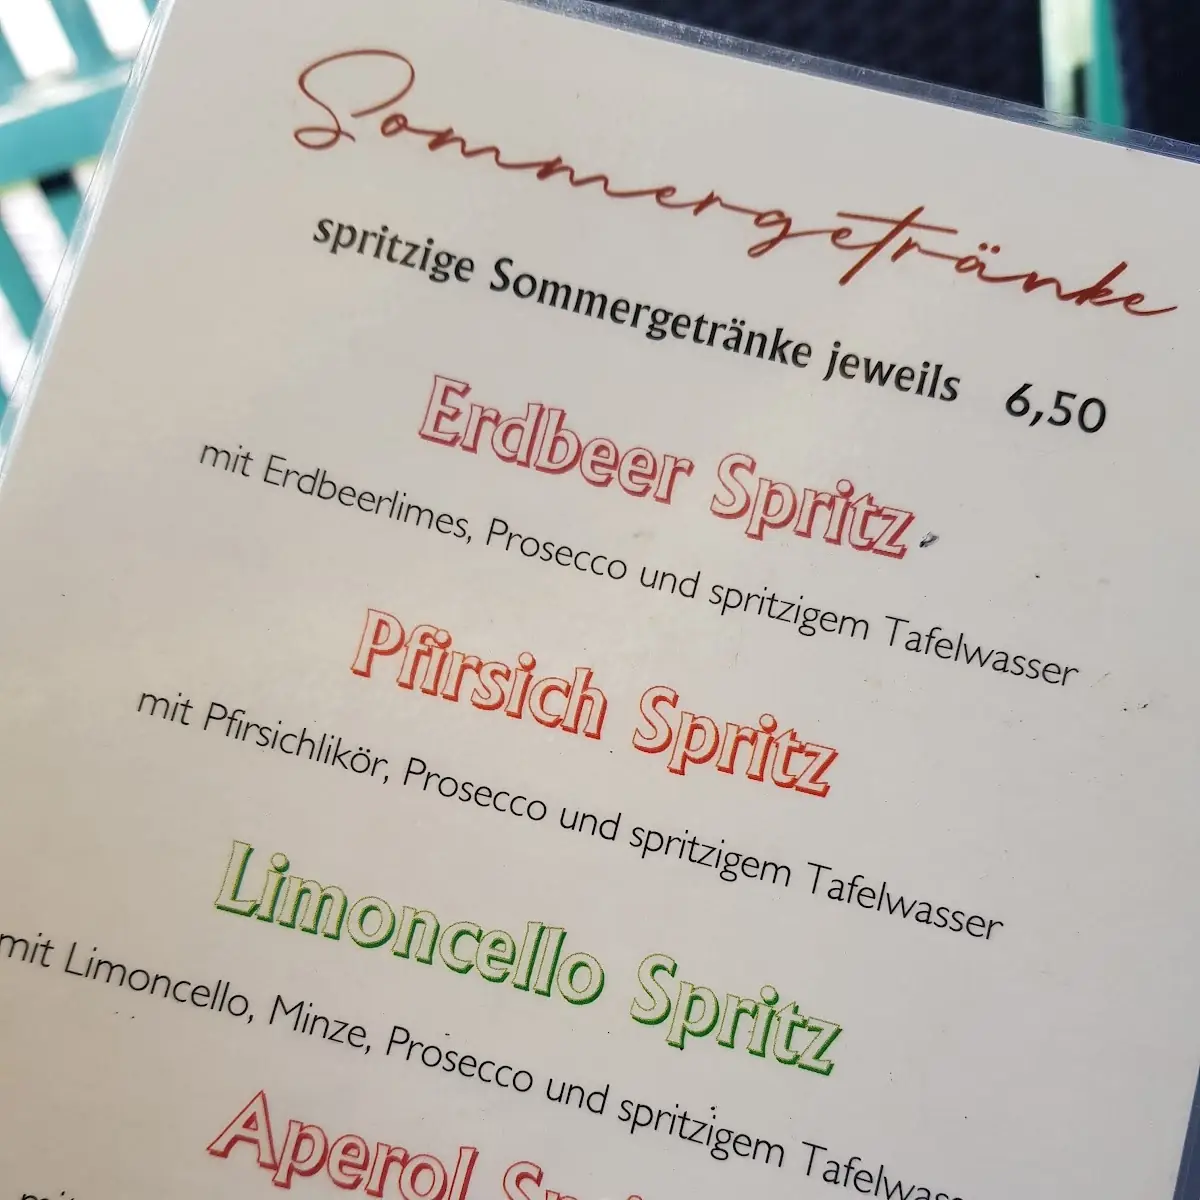 Sommergetränke
spritzige Sommergetränke jeweils 6,50
Erdbeer Spritz
mit Erdbeerlimes, Prosecco und spritzigem Tafelwasser
Pfirsich Spritz
mit Pfirsichlikör, Prosecco und spritzigem Tafelwasser
Limoncello Spritz
mit Limoncello, Minze, Prosecco und spritzigem Tafelwas
Aperol